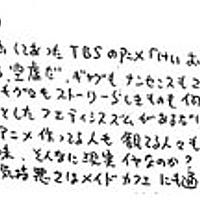 してあった TBSのアニメ「けいお
空虚だ。ギャグもナンセンスもて
もグなもストーリーらしきものも何
としたフェティシズムがあるだけ
アニメ作ってる人も観てる人も
味、そんなに現実イヤなのか?
気持悪さはメイドカフェにも通